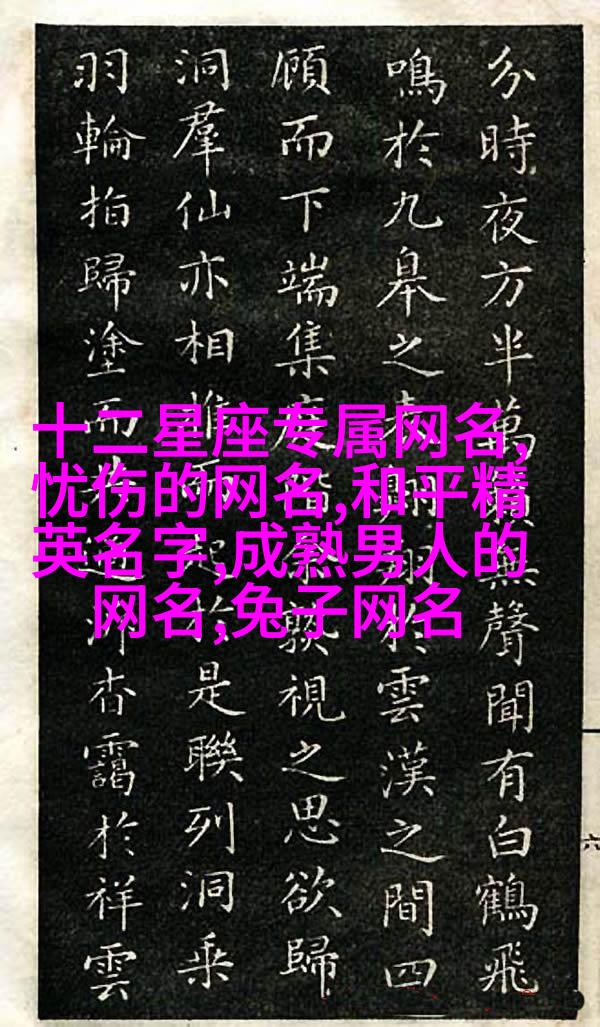 十二星座专属网名,
忧伤的网名,和平精
英名字,成熟男人的
网名,兔子网名
分時夜方半萬無聲聞有白鶴飛
鳴於九皋之表翔於雲漢之間四
顧而下端集視之思欲歸
洞羣仙亦相於是聯列洞乘
羽輪拍歸塗而杳靄於祥雲
六